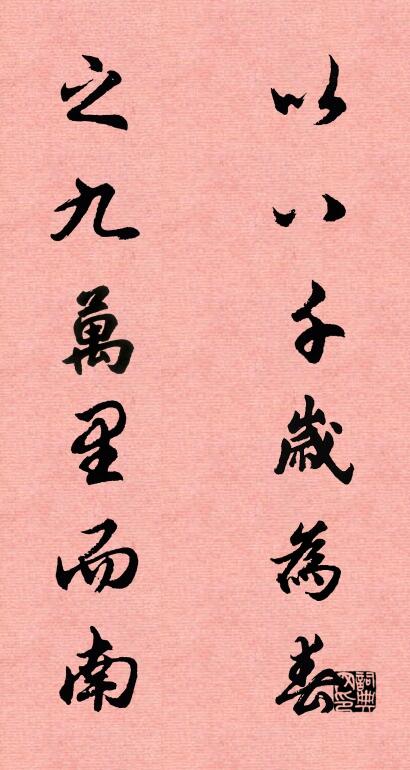 以八千歲為春
之九萬里而南